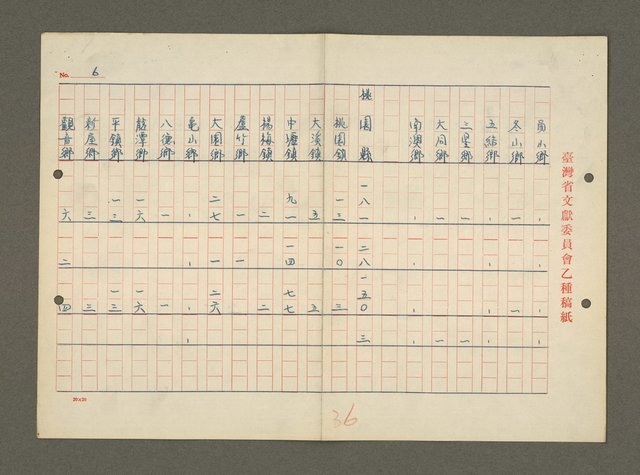 No. 6
臺灣省文獻委員會乙種稿紙
員山鄉 、 、
冬山鄉 一 一
五結鄉 、 、
三星鄉 一 一
大同鄉 一 一
南澳鄉 、 、
桃園縣 一八一 二八 一五〇 三
桃園鎮 一三 一〇 三
大溪鎮 五 五
中壢鎮 九一 一四 七七
楊梅鎮 二 二
蘆竹鄉 一 一
大園鄉 二七 一 二六
龜山鄉 、 、 、 、
八德鄉 一 一
龍潭鄉 一六 一六
平鎮鄉 一三 一三
新屋鄉 三 三
觀音鄉 六 二 四
20x20
36